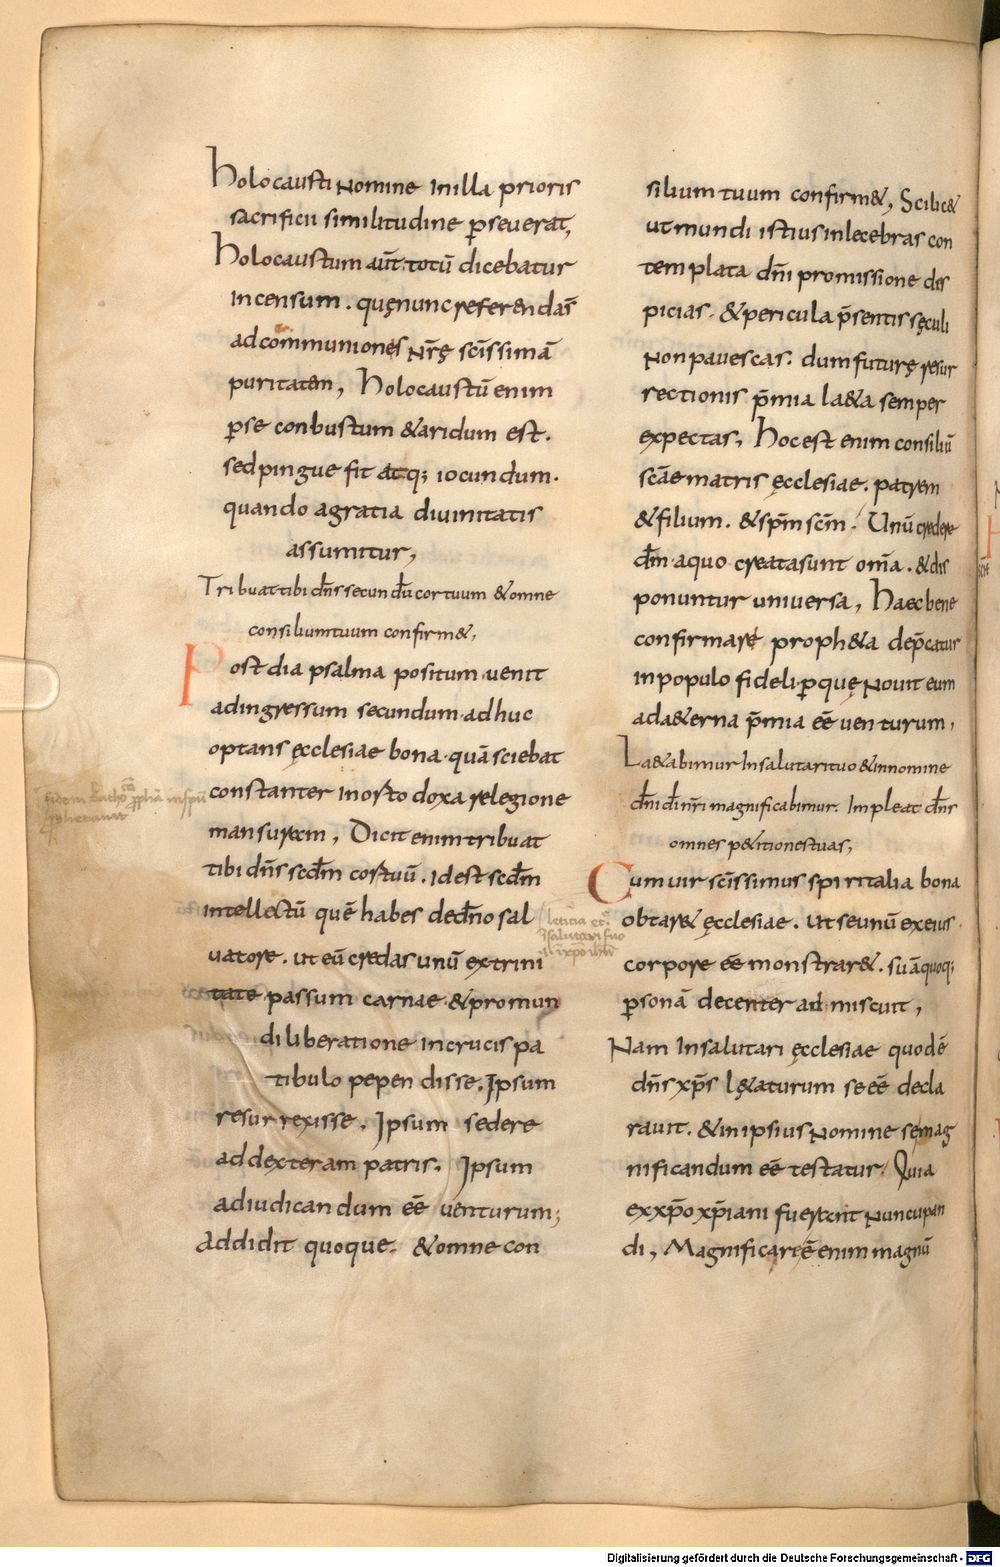 Holocausti Nomine Inilla prioris
sacrificii similitudine p̱seuerat,
Holocaustum aut̄ totū dicebatur
Incensum. quęnunc refer&n das̄
adcommuniones Nr̄ę scīssimā
puritat&m, Holocaustū enim
p̱se conbustum &aridum est.
sed pingue fit atq; iocundum.
quando agratia diuinitatis
assumitur,
Tribuat tibi dn̄s secundū cortuum &omne
consilium tuum confirm&,
Post dia psalma positum uenit
adingressum secundum adhuc
optans ęcclesiae bona quā sciebat
constanter Inortodoxa relegione
mansurem, Dicit enim tribuat
tibi dn̄s secd̄m cortuū. Idest secd̄m
Intellectū quē habes dedn̄o sal
uatore. ut eū credas unū extrini
tate passum carnae &promun
diliberatione incrucis pa
tibulo pependisse. Ipsum
resurrexisse. Ipsum sedere
addexteram patris. Ipsum
adiudicandum eē uenturum;
Addidit quoque. &omne con
silium tuum confirm&, Scilic&
ut mundi istius inlecebras con
templata dn̄i promissione dis
picias. &pericula p̄sentis sęculi
Non pauescas. dum futurę resur
rectionis p̄mia la&a semper
expectas, Hocest enim consiliū
scāe matris ęcclesiae. patrem
&filium. &sp̄m scm̄. Unū credere
dm̄. aquo creatasunt om̄a. &dis
ponuntur uniuersa, Haec bene
confirmare proph&a dep̄catur
Inpopulo fideli. p̱quę Nouit eum
ada&erna p̄mia eē uenturum,
La&abimur Insalutarituo &innomine
dn̄i dī nr̄i magnificabimur. Impleat dn̄s
omnes p&itionestuas,
Cum uir scīssimus spiritalia bona
obtar& ęcclesiae. Ut seunū exeius
corpore eē monstrar&. suāquoq;
p̱sonā decenter ad miscuit,
Nam Insalutari ęcclesiae quodē
dn̄s xp̄s l&aturum se eē decla
rauit. &inipsius Nomine semag
nificandum eē testatur. Quia
exxp̄o xp̄iani fuerant Nuncupan
di, Magnificari ē enim magnū
Digitalisierung gefördert durch die Deutsche Forschungsgemeinschaft - DFG